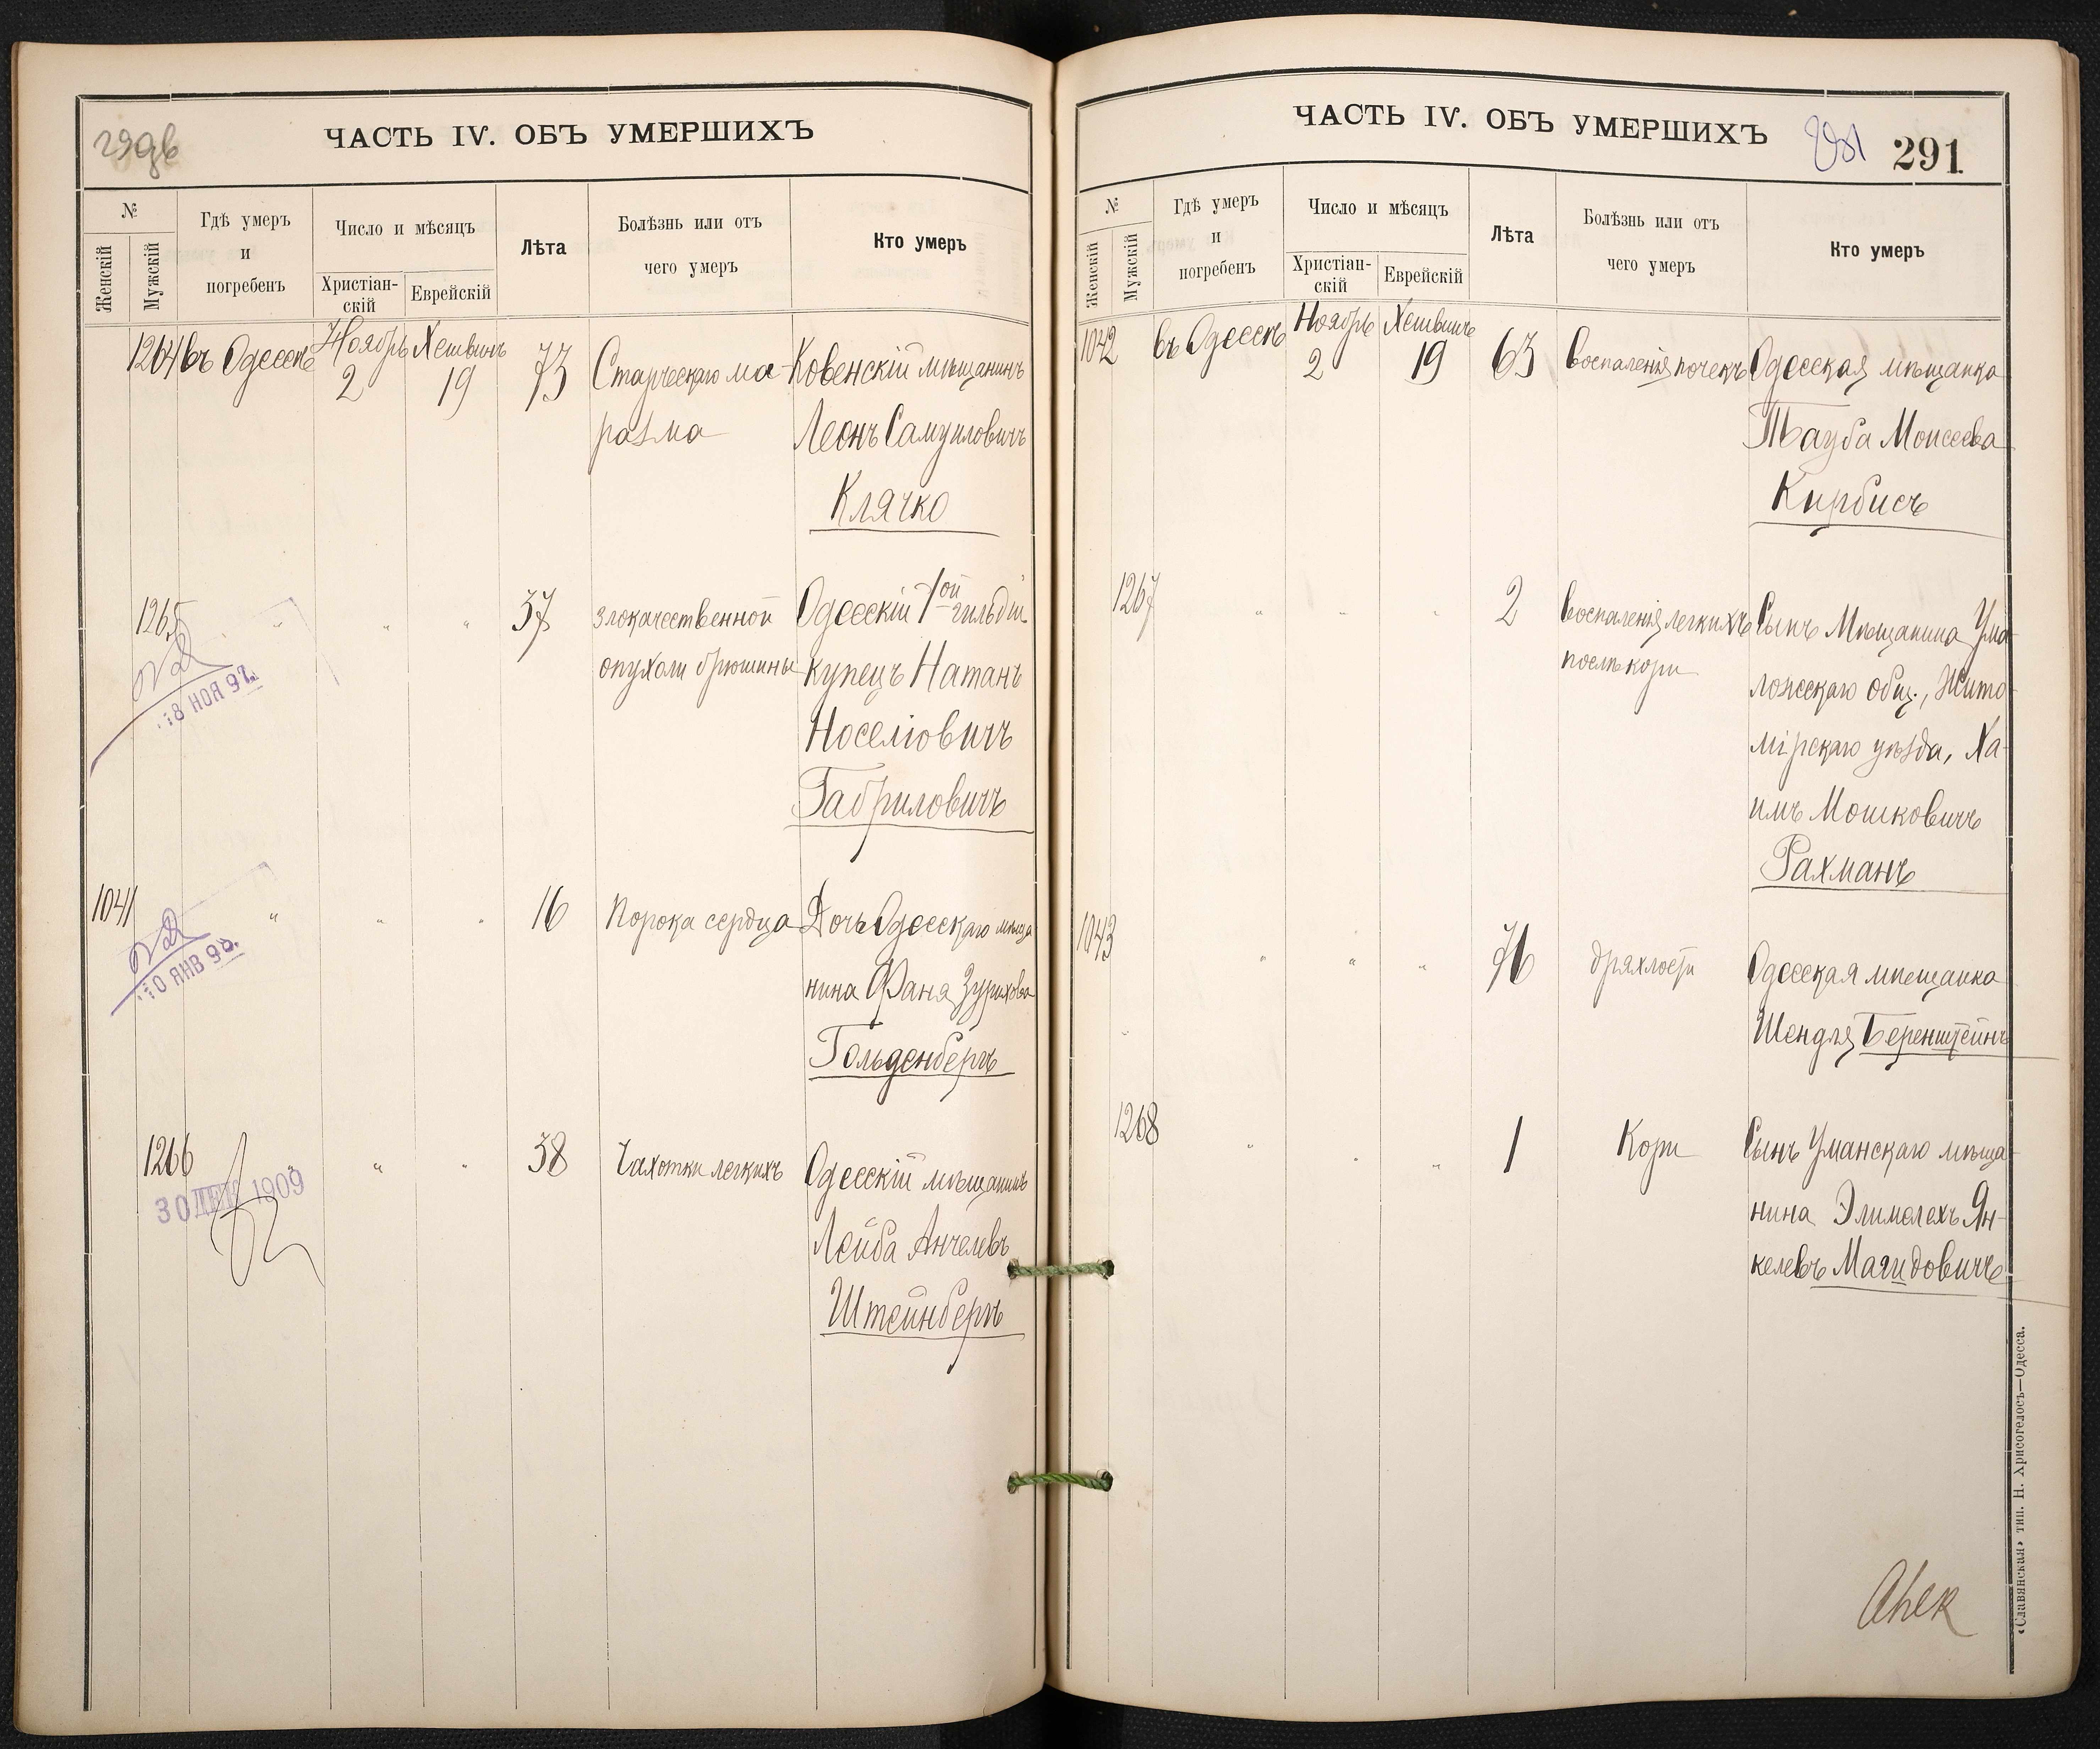 ЧАСТЬ IV. ОБЪ УМЕРШИХЪ
№
Женскій
Мужскій
Гдѣ умеръ
и
погребенъ
Число и мѣсяцъ
Христіан-
скій
Еврейскій
Лѣта
Болѣзнь или отъ
чего умеръ
Кто умеръ
1264 въ Одессѣ Ноябрь 2 Хешвинъ 19 73 Старческаго ма- Ковенскій мѣщанинъ
разма Леонъ Самуиловичъ
Клячко
1265 " " " 37 злокачественной Одесскій 1ой гильдіи
опухоли брюшины купецъ Натанъ
18 НОЯ 97.
Носеліовичъ
Габриловичъ
1041 " " " 16 Порока сердца Дочь Одесскаго мѣща
10 ЯНВ 98.
нина Фаня Зурихова
Гольденбергъ
1266 " " 38 Чахотки легкихъ Одесскій мѣщанинъ
30 ДЕК 1909
Лейба Анчелевъ
Штейнбергъ
ЧАСТЬ IV. ОБЪ УМЕРШИХЪ
291
№
Женскій
Мужскій
Гдѣ умеръ
и
погребенъ
Число и мѣсяцъ
Христіан-
скій
Еврейскій
Лѣта
Болѣзнь или отъ
чего умеръ
Кто умеръ
1042 въ Одессѣ Ноябрь 2 Хешвинъ 19 63 Воспаленія почекъ Одесская мѣщанка
Тауба Моисеева
Кирбисъ
1267 " " " 2 Воспаленія легкихъ Сынъ Мѣщанина
послѣ кори общ., Жито-
мірскаго уѣзда, Ха-
имъ Мошковичъ
Рахманъ
1043 " " " 76 дряхлости Одесская мѣщанка
Шендля Беренштейнъ
1268 " " " 1 Кори Сынъ Уманскаго мѣща-
нина Элимелехъ Ян-
келевъ Магидовичъ
«Славянская» тип. Н. Хрисогелосъ—Одесса.